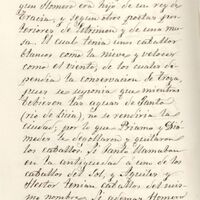 gun Homero era hijo de un rey de
Tracia, y segun otros poetas pos-
teriores de Estrimon y de una mu-
sa. El cual tenia unos caballos
blancos como la nieve y veloces
como el viento, de los cuales de-
pendia la conservacion de Troya,
pues se suponia que mientras
bebiesen las aguas de Santo
(rio de Frigia), no se rendiria la
ciudad; por lo que Priamo y Dio-
medes le degollaron y quitaron
los caballos. Santo llamaban
en la antiguedad a uno de los
caballos del Sol, y Aquiles y
Hector tenian caballos del mis-
mo nombre. Si ademas Homero